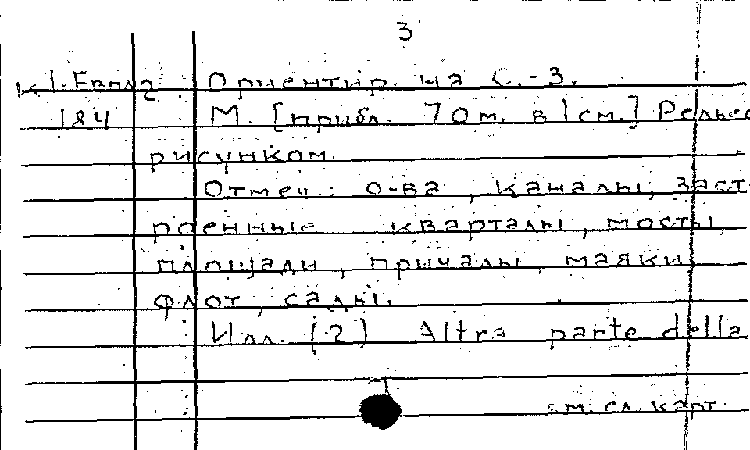 3
К 1-Европ2 Ориентир. на С.-З.
184 М. [прибл. 70 м. в 1 см.] Рельеф
рисунком.
Отмеч: о-ва, каналы, заст
роенные кварталы, мосты,
площади, причалы, маяки,
флот, сады.
Илл. (2) Altra parte della
см. сл. карт.